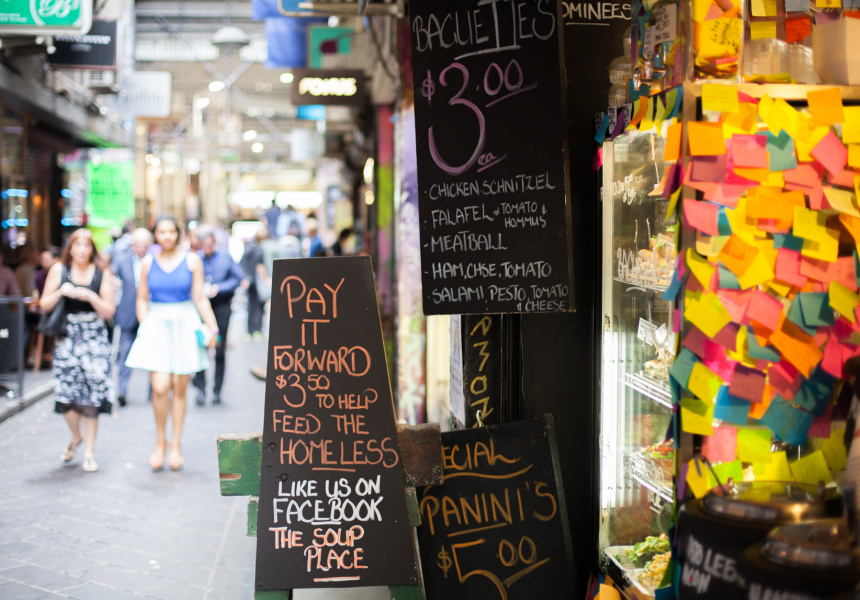 BAGUETTES
$3.00
ea
· CHICKEN SCHNITZEL
· FALAFEL TOMATO &
HOMMUS
· MEATBALL
· HAM, CHSE, TOMATO
· SALAMI, PESTO, TOMATO
& CHEESE
PAY
IT
FORWARD
$3.50 TO HELP
FEED THE
HOMELESS
LIKE US ON
FACEBOOK
THE SOUP
PLACE
ECIAL
PANINI'S
$5.00
OMINEES